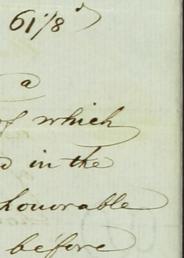 61/8
a
of which
d in the
honorable
before